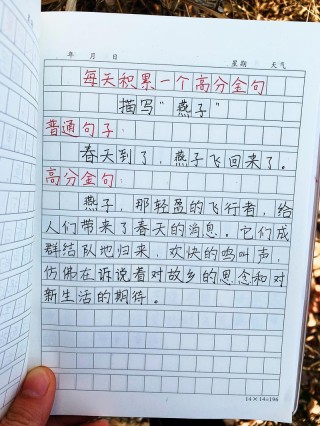 年 月 日 星期 天气
每天积累一个高分金句
描写"燕子"
普通句子
春天到了，燕子飞回来了。
高分金句
燕子，那轻盈的飞行者，给
人们带来了春天的消息。它们成
群结队地归来，欢快的鸣叫声，
仿佛在诉说着对故乡的思念和对
新生活的期待。
14×14=196